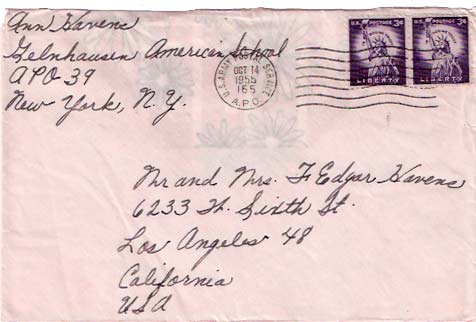 Ann Havens
Gelnhausen American School
APO 39
New York, N.Y.
U.S. ARMY POSTAL SERVICE
OCT 14
1955
165
A.P.O.
U.S. POSTAGE 3¢
LIBERTY
U.S. POSTAGE 3¢
LIBERTY
Mr and Mrs. F Edgar Havens
6233 W. Sixth St.
Los Angeles 48
California
USA